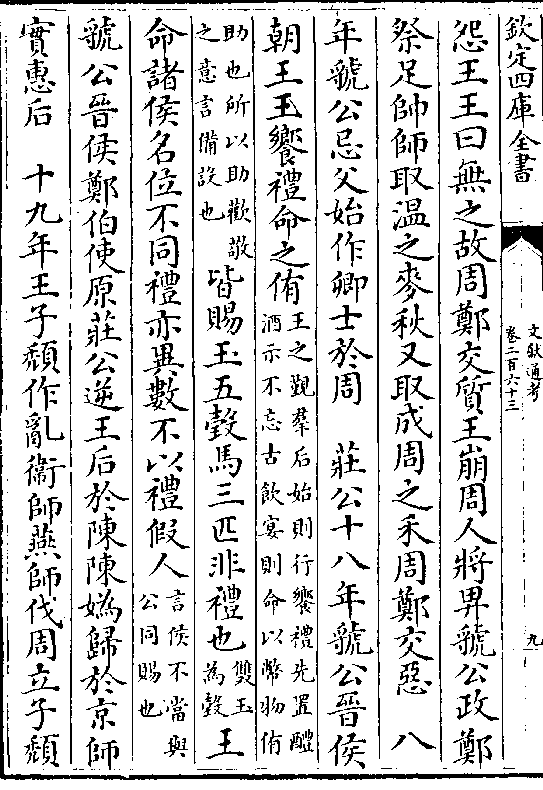 欽定四庫全書
文獻通考
卷二百六十三
九
怨王王曰無之故周鄭交質王崩周人將畀虢公政鄭
祭足帥師取温之麥秋又取成周之禾周鄭交惡　八
年虢公忌父始作卿士於周　莊公十八年虢公晉侯
朝王王饗禮命之侑王之覲羣后始則行饗禮先置醴
酒示不忘古飲宴則命以幣物侑
助也所以助歡敬
之意言備設也皆賜玉五瑴馬三匹非禮也雙玉
為瑴王
命諸侯名位不同禮亦異數不以禮假人言侯不當與
公同賜也
虢公晉侯鄭伯使原莊公逆王后於陳陳媯歸於京師
實惠后　十九年王子頽作亂衞師燕師伐周立子頽